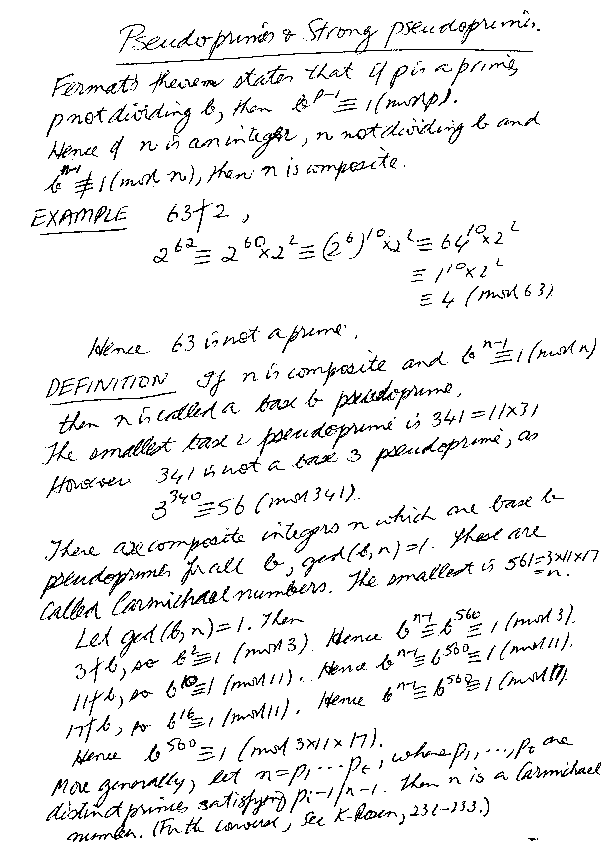 Pseudoprimes & Strong pseudoprimes.
Fermat's theorem states that if p is a prime,
p not dividing b, then b^{p-1} ≡ 1 (mod p).
Hence if n is an integer, n not dividing b and
b^{n-1} ≢ 1 (mod n), then n is composite.
EXAMPLE 63 ∤ 2,
2^{62} ≡ 2^{60} × 2^2 ≡ (2^6)^{10} × 2^2 ≡ 64^{10} × 2^2
≡ 1^{10} × 2^2
≡ 4 (mod 63)
Hence 63 is not a prime.
DEFINITION If n is composite and b^{n-1} ≡ 1 (mod n)
then n is called a base b pseudoprime.
The smallest base 2 pseudoprime is 341 = 11 × 31
However 341 is not a base 3 pseudoprime, as
3^{340} ≡ 56 (mod 341).
There are composite integers n which are base b
pseudoprimes for all b, gcd(b, n) = 1. These are
called Carmichael numbers. The smallest is 561 = 3×11×17
= n.
Let gcd(b, n) = 1. Then
3 ∤ b, so b^2 ≡ 1 (mod 3). Hence b^{n-1} ≡ b^{560} ≡ 1 (mod 3).
11 ∤ b, so b^{10} ≡ 1 (mod 11). Hence b^{n-1} ≡ b^{560} ≡ 1 (mod 11).
17 ∤ b, so b^{16} ≡ 1 (mod 11). Hence b^{n-1} ≡ b^{560} ≡ 1 (mod 17).
Hence b^{560} ≡ 1 (mod 3×11×17).
More generally, let n = p_1 ... p_t, where p_1, ..., p_t are
distinct primes satisfying p_i - 1 / n - 1. Then n is a Carmichael
number. (For the converse, see K. Rosen, 232-233.)